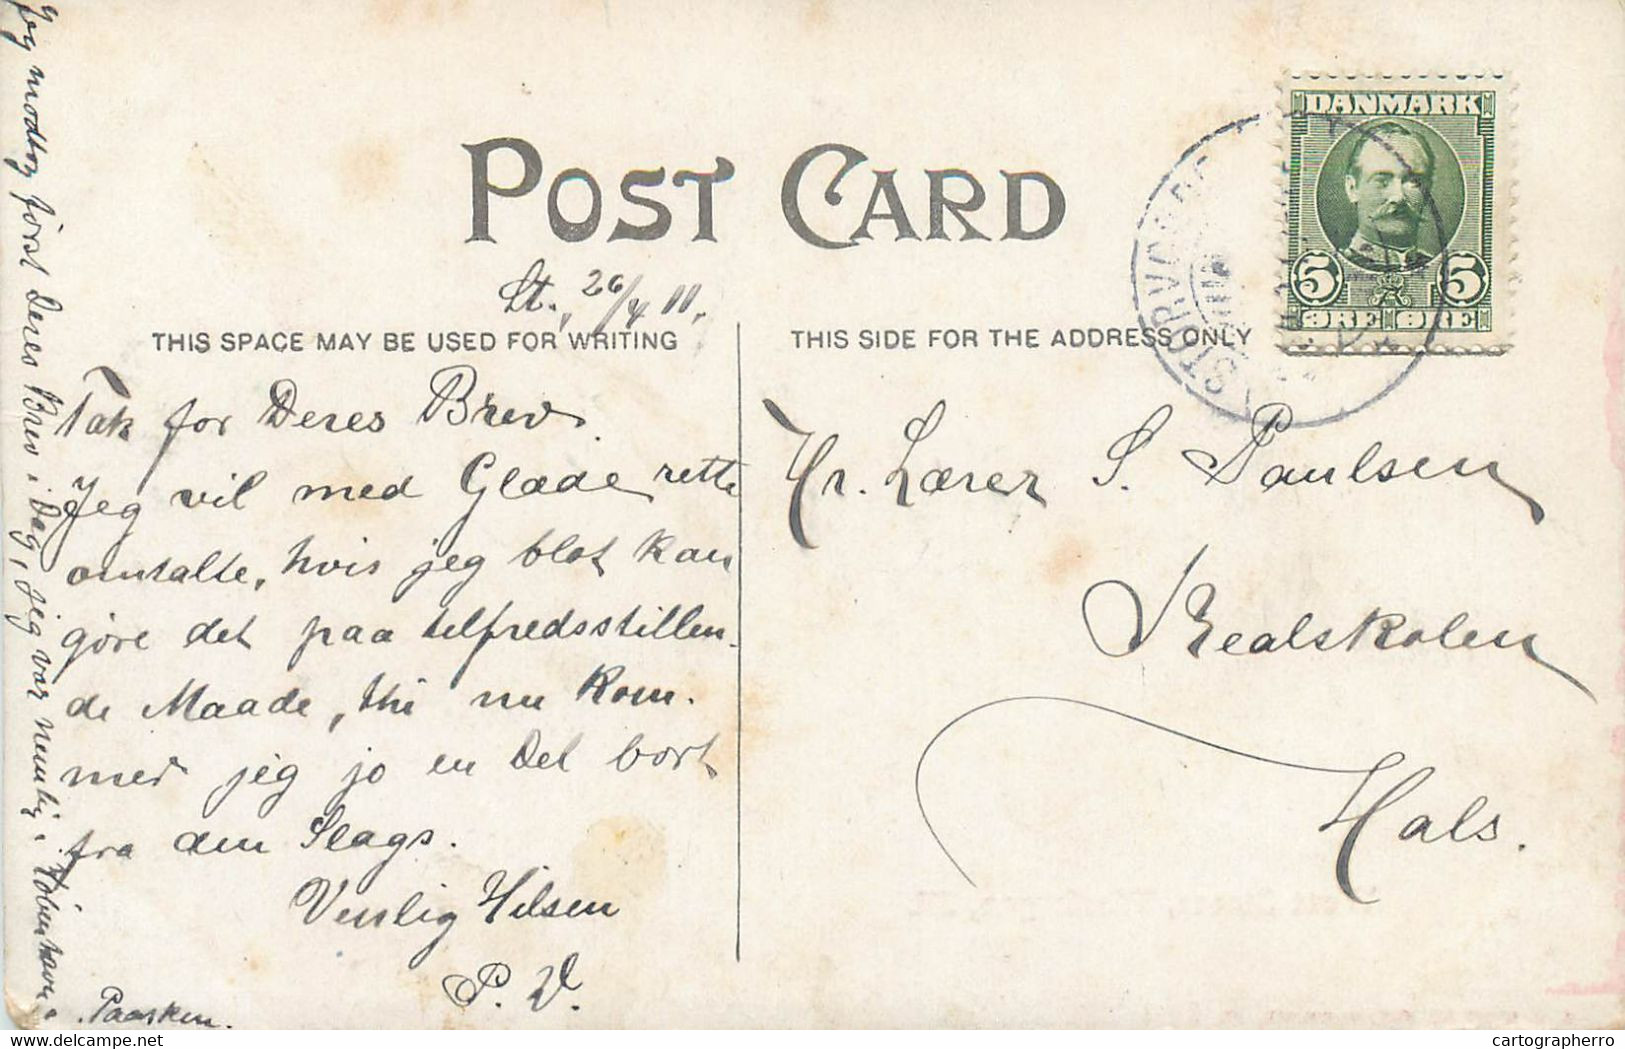 POST CARD
St., 26/4 11.
THIS SPACE MAY BE USED FOR WRITING
THIS SIDE FOR THE ADDRESS ONLY
Tak for Deres Brev.
Jeg vil med Glæde rette
omtalte, hvis jeg blot kan
gøre det paa tilfredsstillen-
de Maade, thi nu kom-
mer jeg jo en Del bort
fra den Slags.
Venlig Hilsen
P. V.
Jeg modtog først Deres Brev i Dag, jeg var nemlig i København i
Paasken.
Hr. Lærer S. Paulsen
Realskolen
Hals.
DANMARK
5 5
ØRE ØRE
STORVORDE
www.delcampe.net
cartographerro